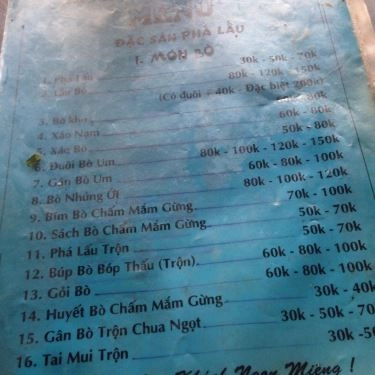 MENU
ĐẶC SẢN PHÁ LẤU
I. MÓN BÒ
1. Phá Lấu 30k - 50k - 70k
2. Lẩu Bò 80k - 120k - 150k
(Có đuôi + 40k - Đặc biệt 200k)
3. Bò khìa
4. Xào Nạm 60k - 80k
5. Xác Bò 50k - 80k
6. Đuôi Bò Um 80k - 100k - 120k - 150k
7. Gân Bò Um 60k - 80k - 100k
8. Bò Nhúng Ớt 80k - 100k - 120k
9. Bìm Bò Chấm Mắm Gừng 70k - 100k
10. Sách Bò Chấm Mắm Gừng 50k - 70k
11. Phá Lấu Trộn 50k - 70k
12. Búp Bò Bóp Thấu (Trộn) 60k - 80k - 100k
13. Gỏi Bò 60k - 80k - 100k
14. Huyết Bò Chấm Mắm Gừng 30k - 40k
15. Gân Bò Trộn Chua Ngọt 30k - 50k - 70k
16. Tai Mui Trộn 30k - 50
Ngon Miệng !